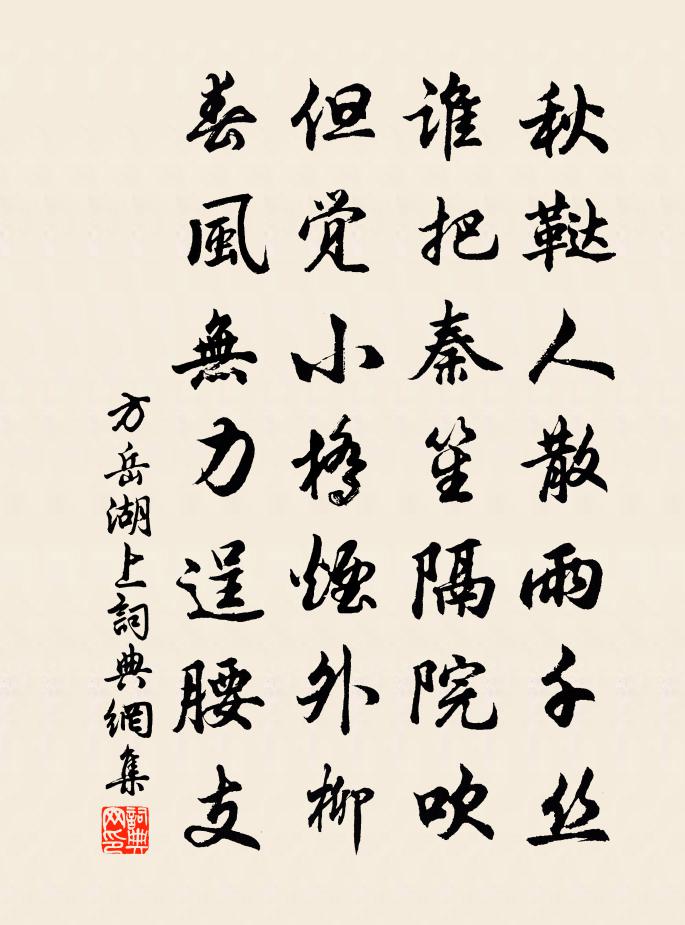 秋鞑人散雨千丝
谁把秦笙隔院吹
但觉小橋煙外柳
春風無力逞腰支
方岳湖上詞典網集
詞典网印